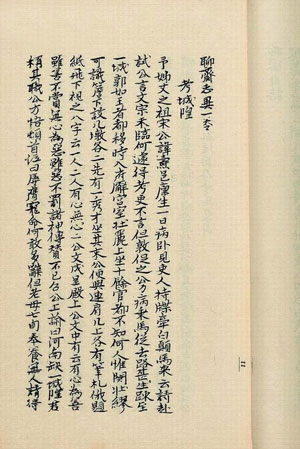 聊齋志異一卷
考城隍
予姊丈之祖宋公諱燾邑廩生一日病卧見吏人持牒牽白顛馬來云請赴
試公言文宗未臨何遽得考吏不言但敦促之公力病乘馬從去路甚生疎至
一城郭如王者都移時入府廨宮室壯麗上坐十餘官都不知何人惟關壯繆
可識簷下設几墩各二先有一秀才坐其末公便與連肩几上各有筆札俄題
紙飛下視之八字云一人二人有心無心二公文成呈殿上公文中有云有心為善
雖善不賞無心為惡雖惡不罰諸神傳贊不已召公上諭曰河南缺一城隍君
稱其職公方悟頓首泣曰辱膺寵命何敢多辭但老母七旬奉養無人請得